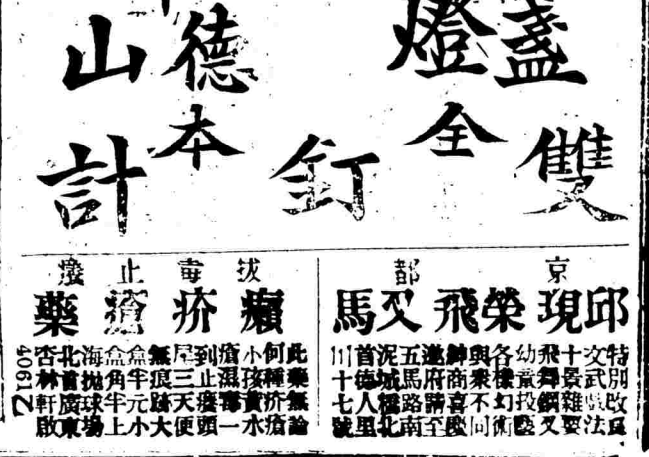 盞燈 德山
雙全釘本計
京都
邱現榮飛叉馬
特別改良
文武戲法
十景雜耍
飛舞鋼叉
幼童投壁
各樣幻術
與衆不同
紳商喜慶
邀府請至
五馬路南
泥城橋北
首德人里
川十七號
拔毒止癢
癩疥瘡藥
此藥無論
何種疥瘡
小孩黃水
瘡濕毒一
到止癢頭
尾三天便
無痕跡大
盒半元小
盒角半上
海拋球場
北首廣東
杏林軒啟